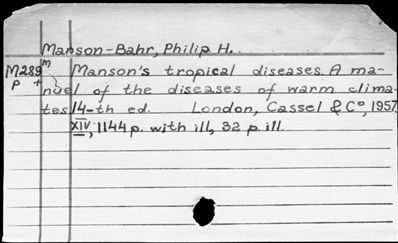 Manson-Bahr, Philip H.
M289 m Manson's tropical diseases. A ma-
p + nuel of the diseases of warm clima-
tes 14-th ed. London, Cassel & Co, 1957
XIV, 1144 p. with ill, 32 p. ill.